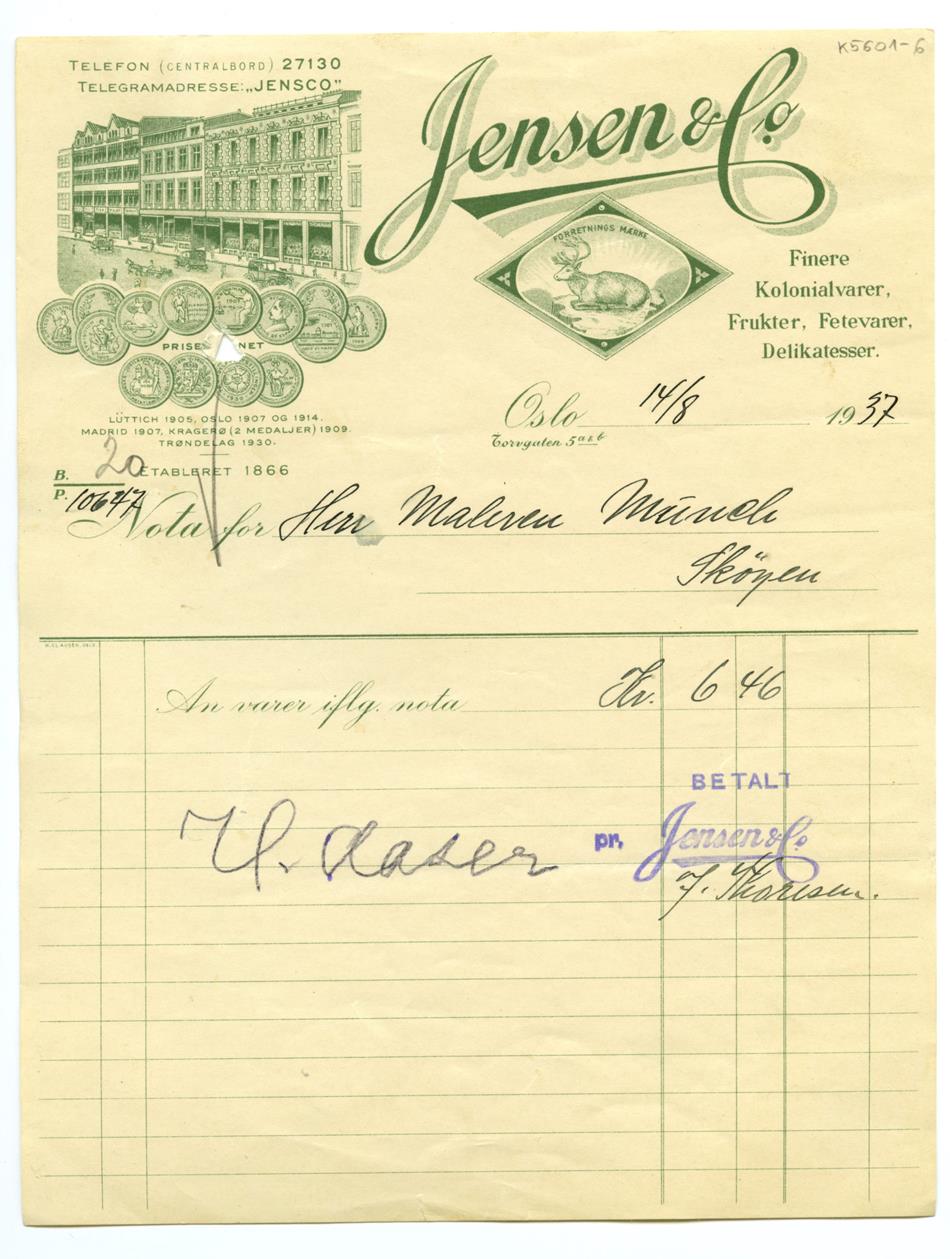 K5601-6
TELEFON (CENTRALBORD) 27130
TELEGRAMADRESSE: „JENSCO"
Jensen & Co.
FORRETNINGS MÆRKE
Finere
Kolonialvarer,
Frukter, Fetevarer,
Delikatesser.
LÜTTICH 1905, OSLO 1907 OG 1914.
MADRID 1907, KRAGERØ (2 MEDALJER) 1909.
TRØNDELAG 1930.
ETABLERET 1866
Oslo 14/8 1937
Torvgaten 5 a & b
B. 20
P. 10647
Nota for Herr Maleren Münch
Sköyen
N. CLAUSEN, OSLO.
An varer iflg. nota Kr. 6 46
BETALT
pr. Jensen & Co.
J. Thoresen.